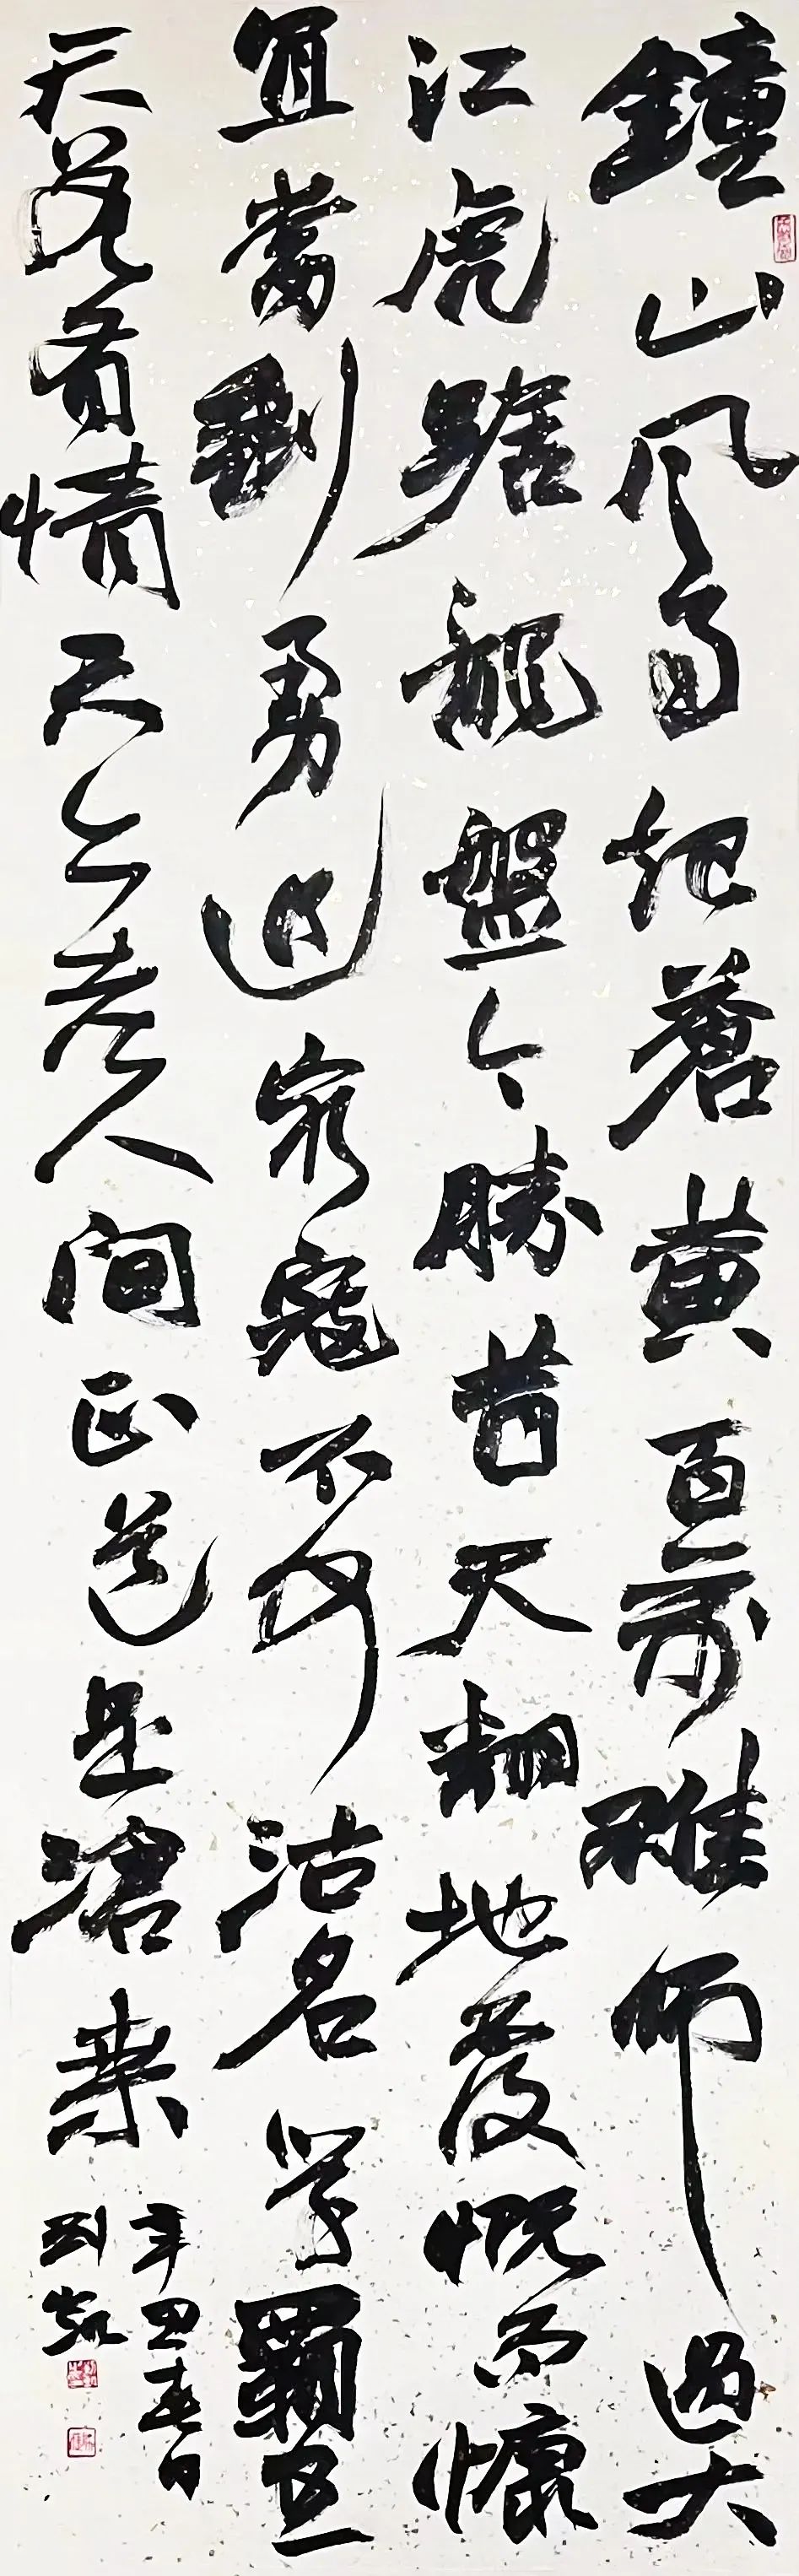 鐘山风雨起蒼黄百萬雄师過大
江虎踞龍盤今勝昔天翻地覆慨而慷
宜當剩勇追穷寇不可沽名学霸王
天若有情天亦老人间正道是滄桑
辛丑春日
刘